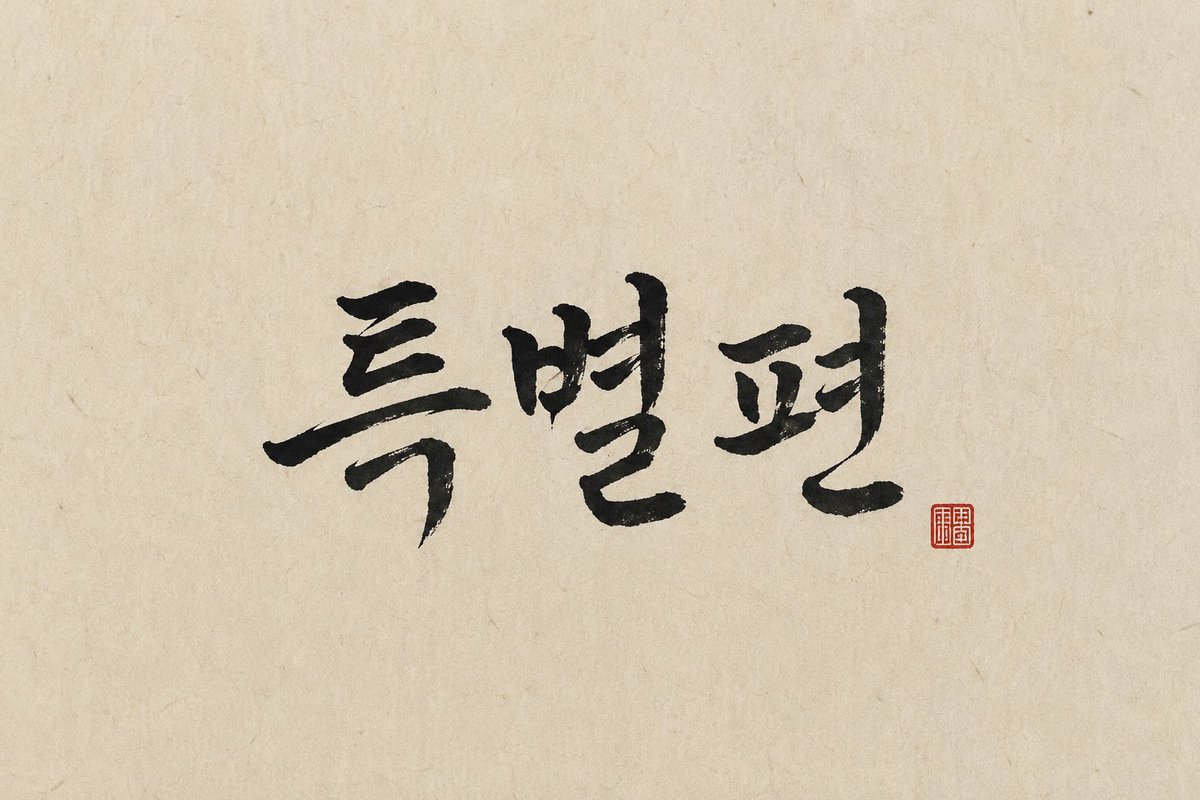 특별편